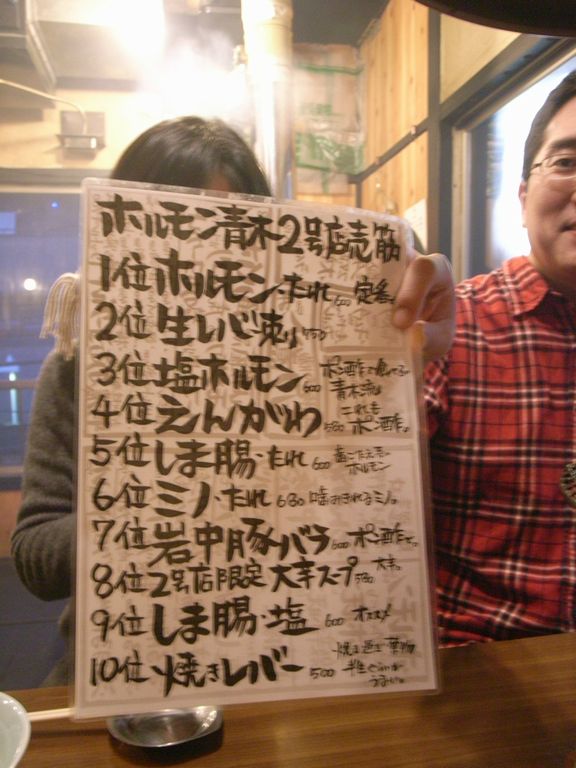 ホルモン青木2号店売筋
1位ホルモン・たれ 600 定番。
2位生レバ刺し 750
3位塩ホルモン 600 ポン酢で食べる。青木流。
4位えんがわ 580 これもポン酢。
5位しま腸・たれ 600 歯ごたえ系ホルモン
6位ミノ・たれ 680 噛みきれるミノ。
7位岩中豚バラ 600 ポン酢で。
8位2号店限定大辛スープ 580 大辛。
9位しま腸・塩 600 オススメ
10位焼きレバー 500 焼き過ぎ厳物 半生ぐらいがうまい。